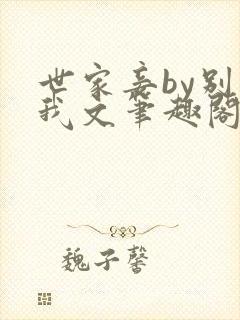 世家妾by别
我文笔趣阁
魏子馨